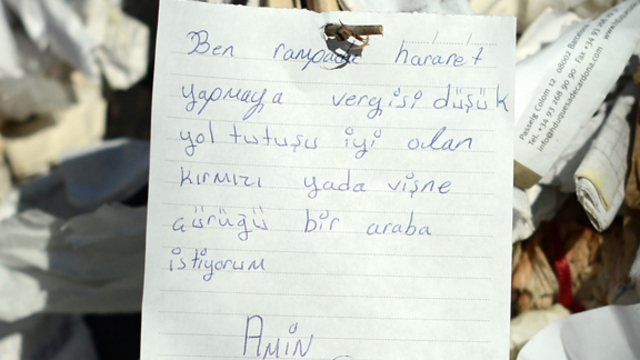 Ben rampada hararet
yapmaya vergisi düşük
yol tutuşu iyi olan
kırmızı yada vişne
çürüğü bir araba
istiyorum
AMİN
Passeig Colom 12 · 08002
Tel. +34 93 268 90 90 Fax +34 93
info@hduquesadecardona.com